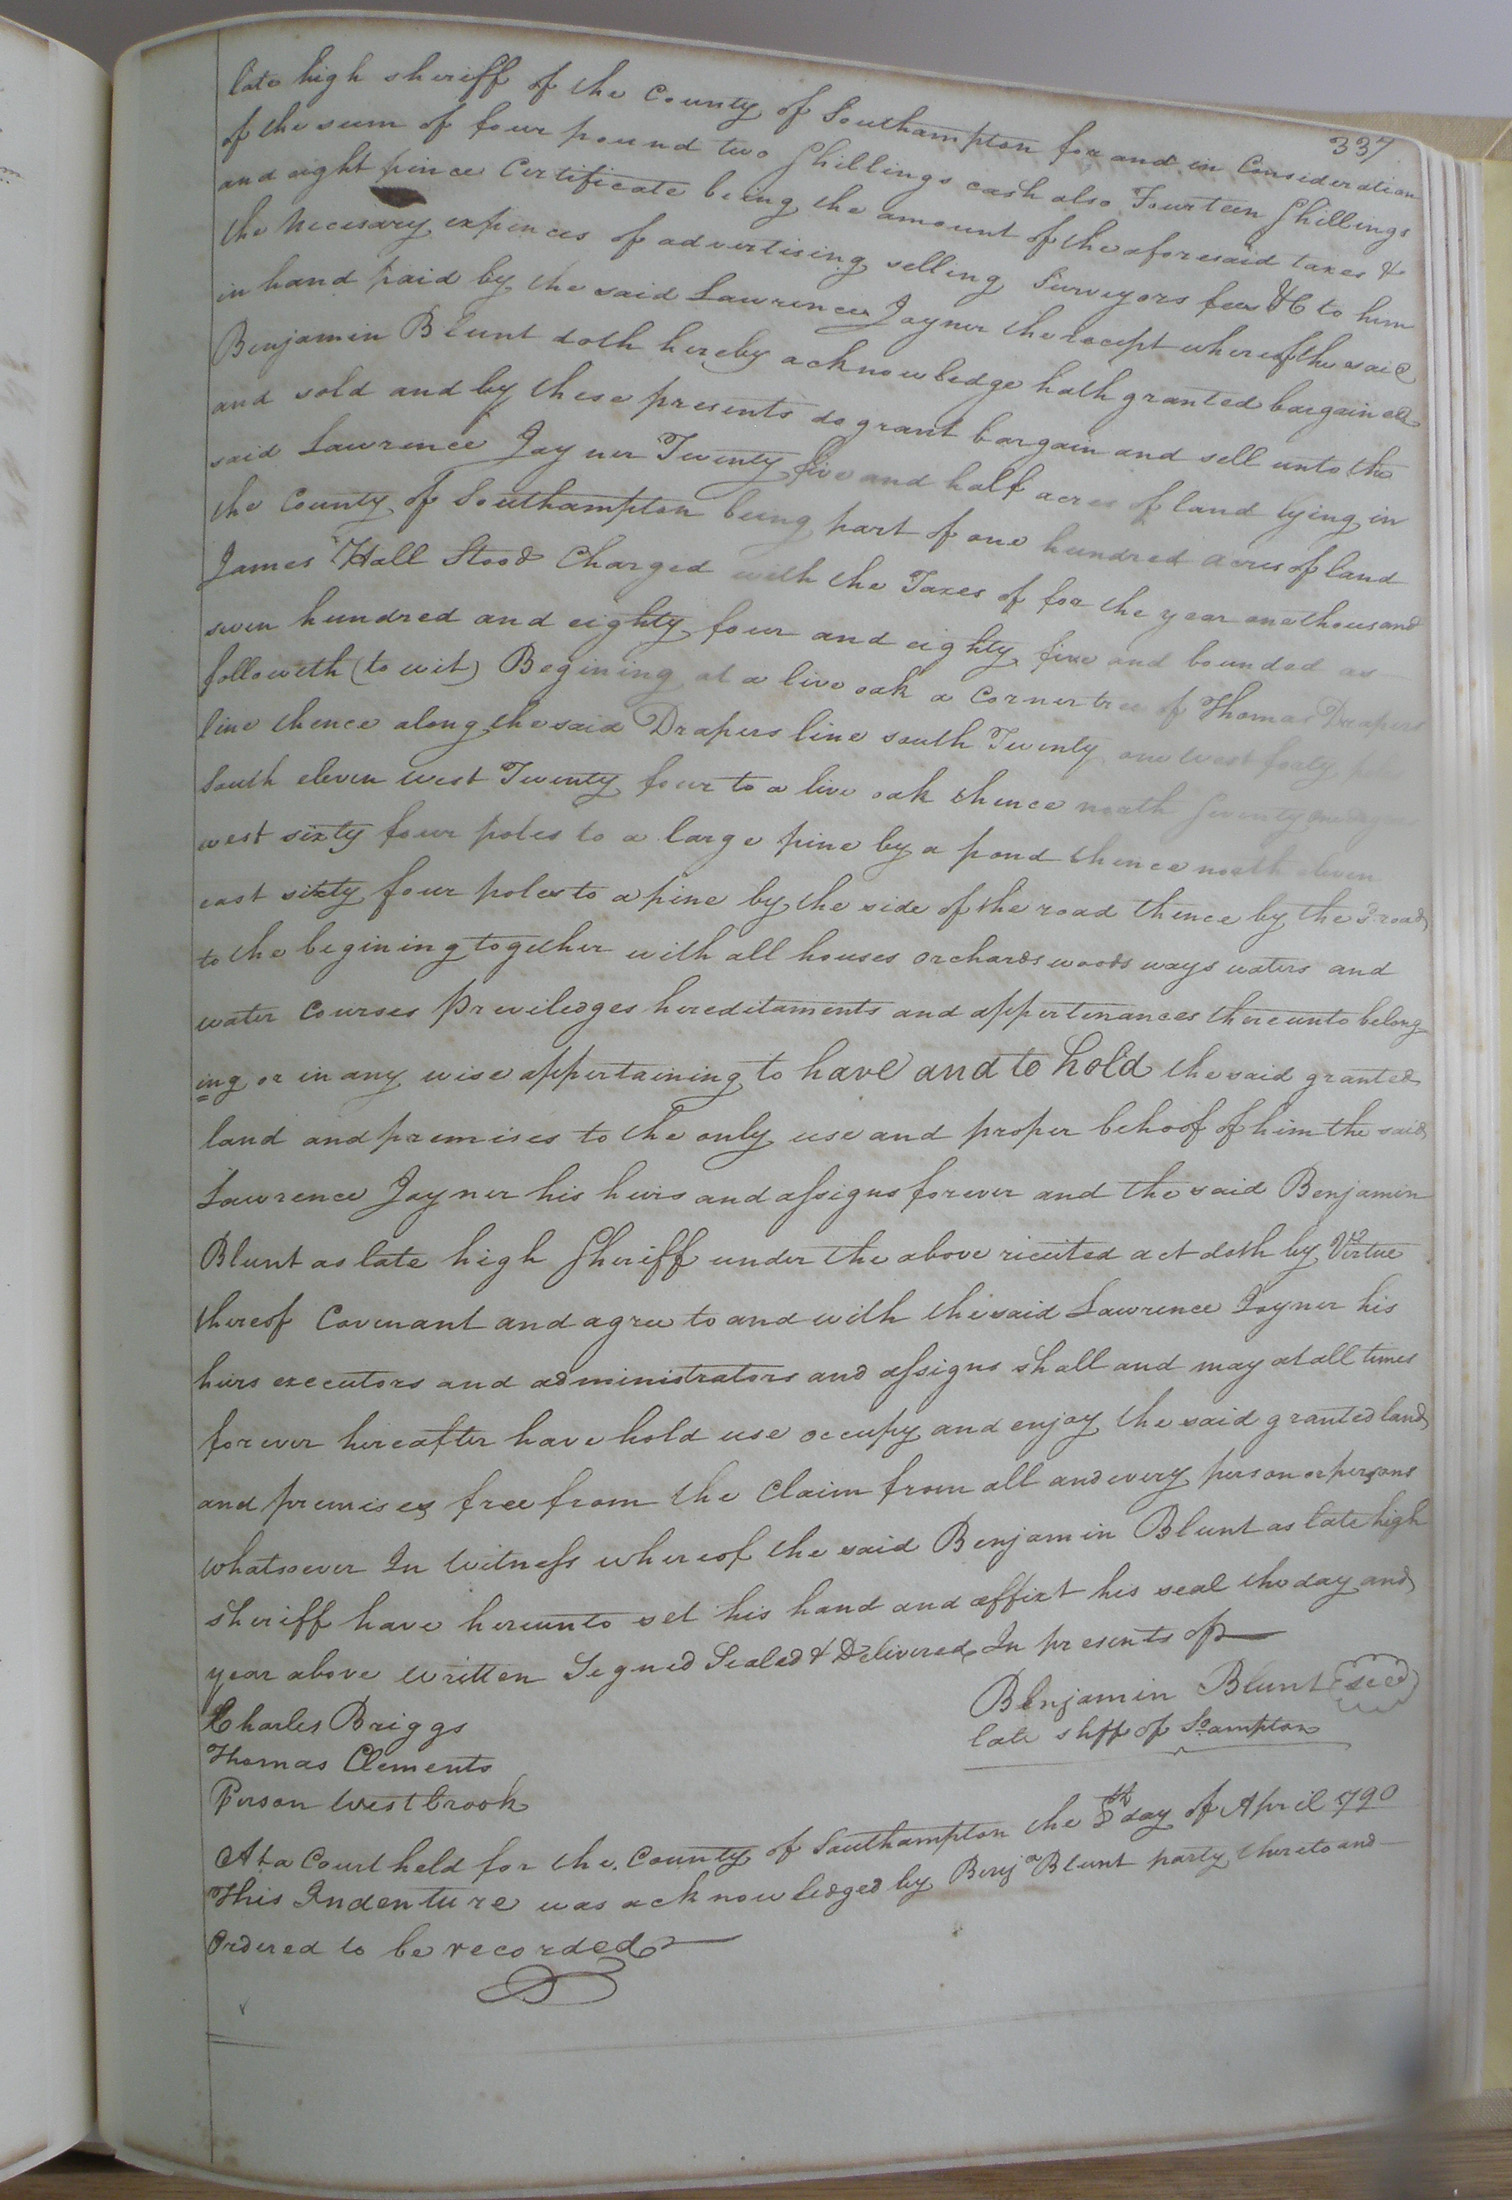 337
late high sheriff of the County of Southampton for and in Consideration
of the sum of four pound two Shillings cash also Fourteen Shillings
and eight pince Certificate being the amount of the aforesaid taxes &
the Necesary expences of advertising selling Surveyors fees &C to him
in hand paid by the said Lawrence Joyner the recept whereof the said
Benjamin Blunt doth hereby acknowledge hath granted bargained
and sold and by these presents do grant bargain and sell unto the
said Lawrence Joyner Twenty five and half acres of land lying in
the County of Southampton being part of one hundred acres of land
James Hall Stood Charged with the Taxes of for the year one thousand
seven hundred and eighty four and eighty five and bounded as
followeth (to wit) Begining at a live oak a corner tree of Thomas Drapers
line thence along the said Drapers line south Twenty one west forty
South eleven west Twenty four to a live oak thence north Seventy
west sixty four poles to a large pine by a pond thence north eleven
east sixty four poles to a pine by the side of the road thence by the sd road
to the begining together with all houses orchards woods ways waters and
water Courses Previledges hereditaments and appertenances thereunto belong
ing or in any wise appertaining to have and to hold the said granted
land and premises to the only use and proper behoof of him the said
Lawrence Joyner his heirs and assigns forever and the said Benjamin
Blunt as late high Sheriff under the above ricited act doth by Virtue
thereof Covenant and agree to and with the said Lawrence Joyner his
heirs executors and administrators and assigns shall and may at all times
forever hereafter have hold use occupy and enjoy the said granted land
and premises free from the Claim from all and every person or persons
whatsoever In Witness whereof the said Benjamin Blunt as late high
sheriff have hereunto set his hand and affixt his seal the day and
year above written Signed Sealed & Delivered In presents of
Benjamin Blunt (seal)
late shff of So.ampton
Charles Briggs
Thomas Clements
Person Westbrook
At a Court held for the County of Southampton the 8th day of April 1790
This Indenture was acknowledged by Benja Blunt party thereto and
Ordered to be recorded